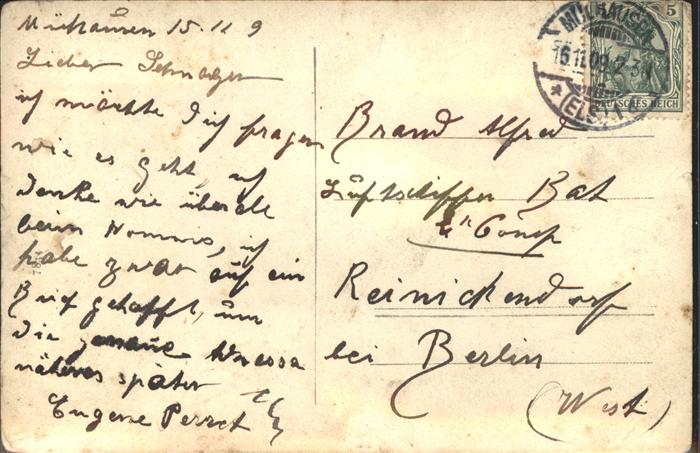 Mülhausen 15.11 9
Lieber Schwager
ich möchte dich fragen
wie es geht, ich
denke wie überall
beim Kommis, ich
habe zwar auf ein
Brief gehofft, um
die genaue Adressa
näheres später
Eugene Perret
MÜLHAUSEN
16.11.09
(ELS.)
5
DEUTSCHES REICH
Brand Alfred
Luftschiffer Bat
4" Comp
Reinickendorf
bei Berlin
(West)